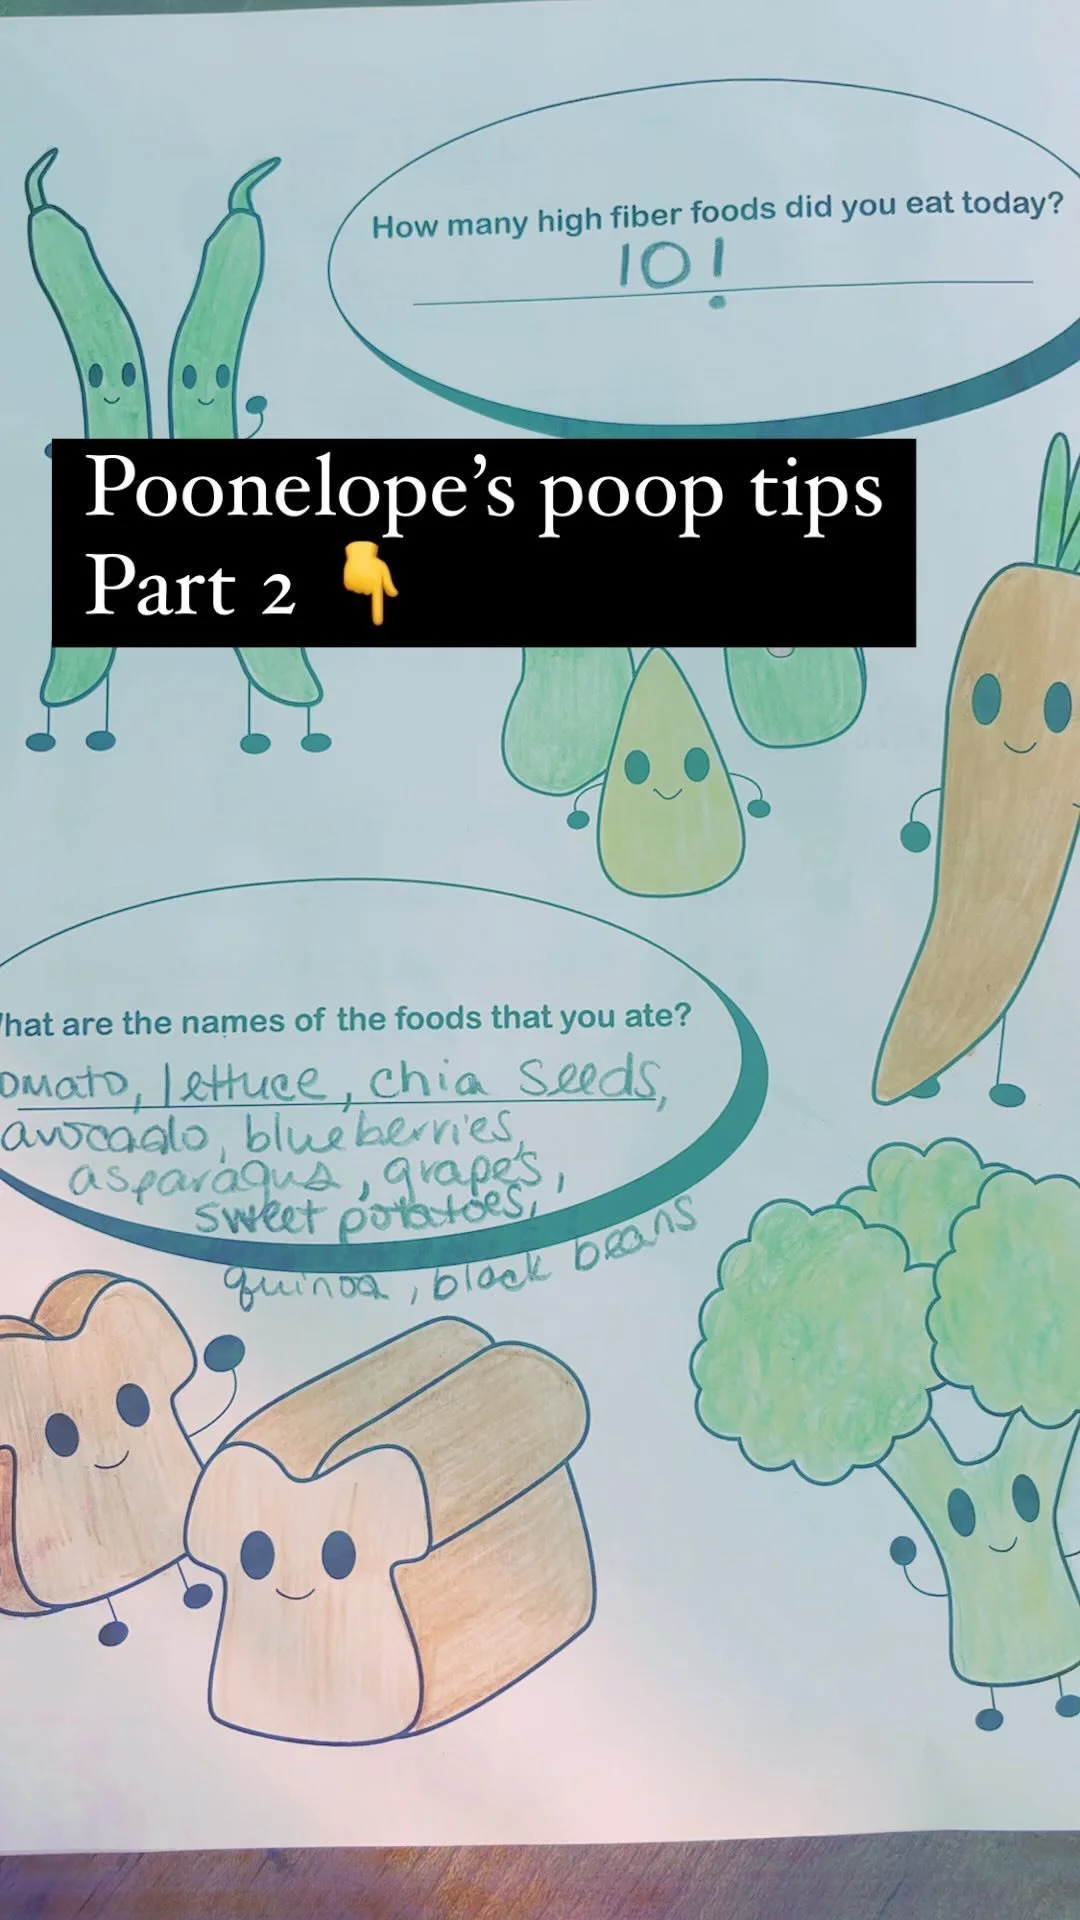 How many high fiber foods did you eat today?
10!
Poonelope's poop tips
Part 2 👇
hat are the names of the foods that you ate?
omato, lettuce, chia seeds,
avocado, blueberries,
asparagus, grapes,
sweet potatoes,
quinoa, black beans